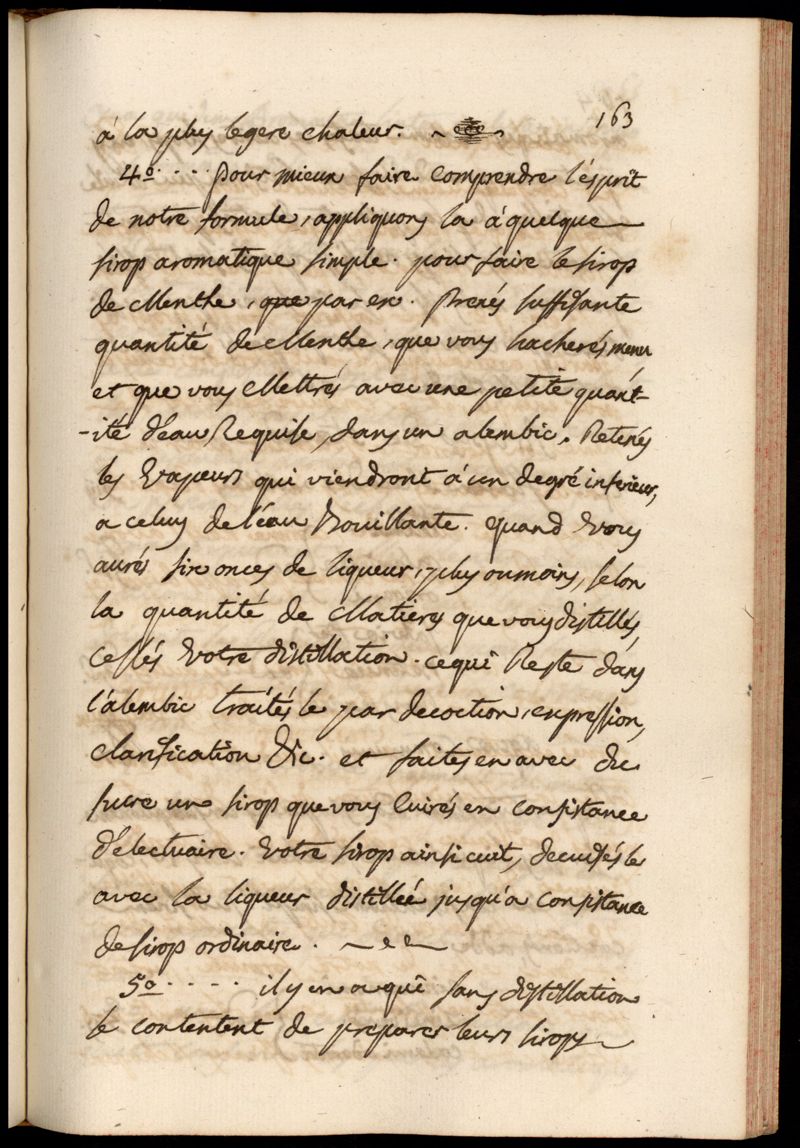 163
à la plus legere chaleur.
4º. . . . pour mieux faire comprendre l'ésprit
de notre formule, appliquons la à quelque
sirop aromatique simple. pour faire le sirop
de Menthe, que par ex. Prenés suffisante
quantité de Menthe, que vous hacherés menu
et que vous Mettrés avec une petite quant-
-ité d'eau Requise, dans un alembic. Retenés
les Vapeurs qui viendront à un degré inferieur,
a celuy de l'éau Bouillante. quand Vous
aurés six onces de liqueur, plus ou moins, selon
la quantité de Matieres que vous distillés,
Cessés Votre distillation. ce qui Reste dans
l'alembic traités le par decoction, expression,
clarification &c. et faites en avec du
sucre un sirop que vous Cuirés en consistance
d'électuaire. Votre sirop ainsi cuit, decuisés le
avec la liqueur distillée jusqu'a consistance
de sirop ordinaire.
5º. . . . . il y en a qui sans distillation
se contentent de preparer leurs sirops